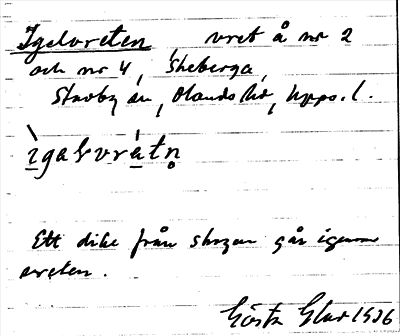 Igelvreten vret å nr 2
och nr 4, Skeberga,
Stavby sn, Olands hd, Upps. l.
ìgaḷvrátn̥
Ett dike från skogen går igenom
vreten.
Gösta 1936